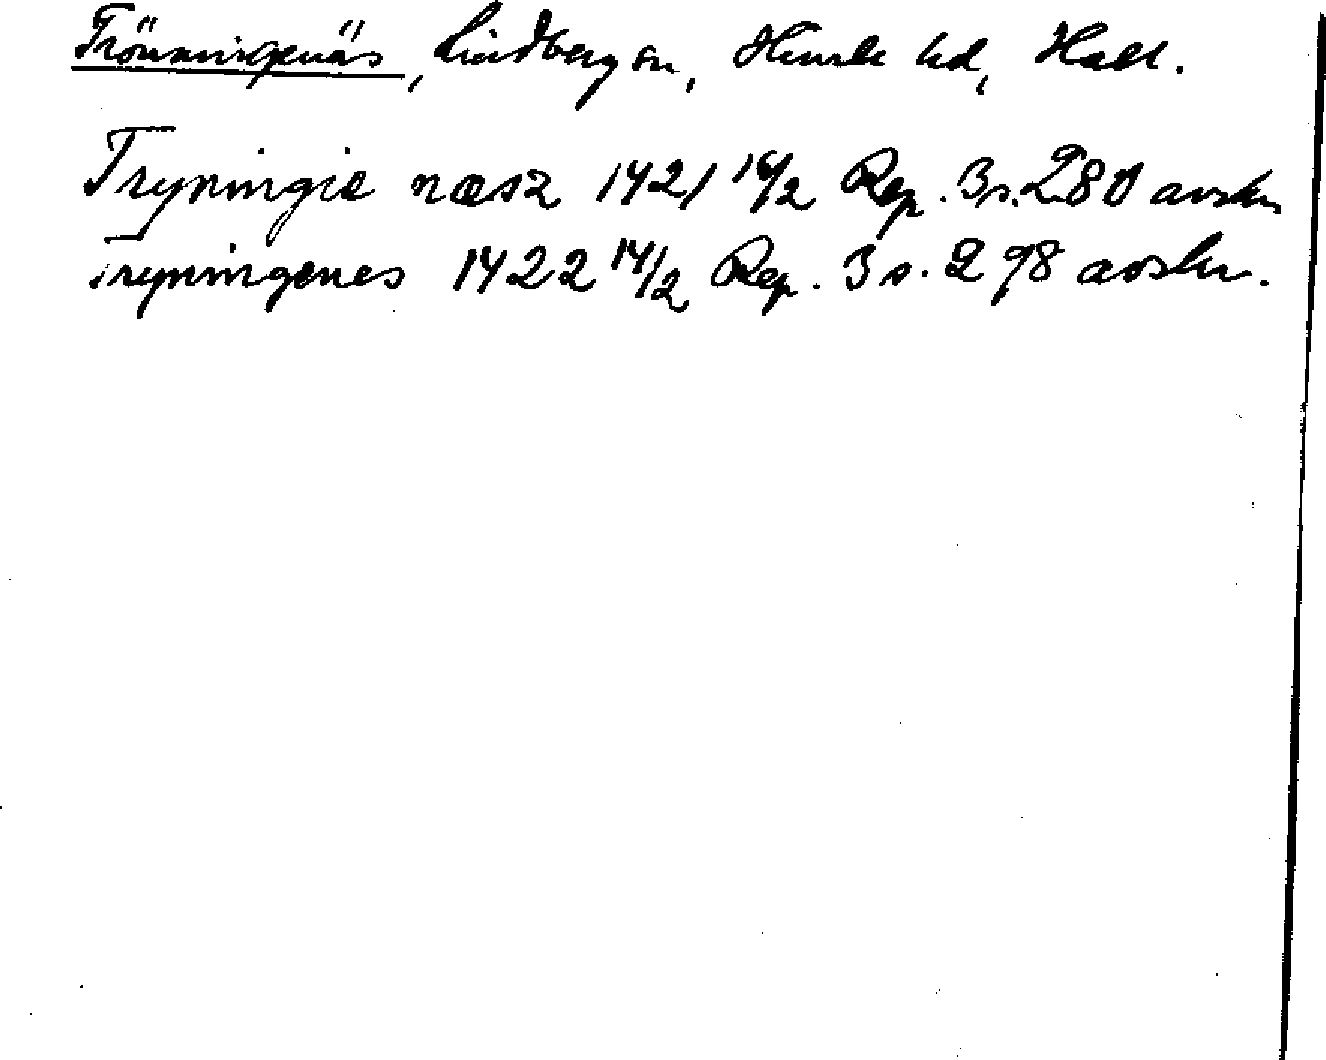 Trönningenäs, Lindberg sn, Himle hd, Hall.
Tryningie næsz 1421 16/2 Rep. 3 s. 280 avskr.
Tryningenes 1422 14/2 Rep. 3 s. 298 avskr.